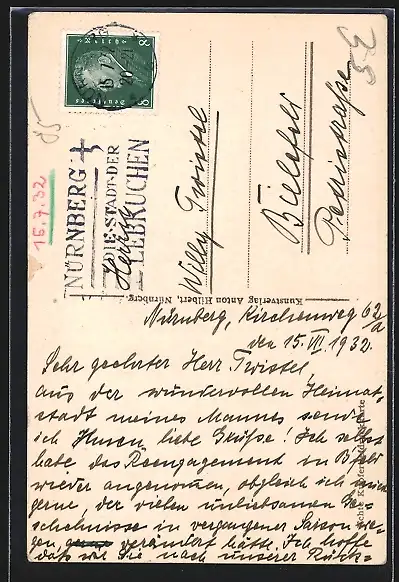 15.7.32
NÜRNBERG
DIE·STADT·DER
LEBKUCHEN
Herrn
Willy Twistel
Bielefeld
Petristrasse
Kunstverlag Anton Hilbert, Nürnberg.
Nürnberg, Kirchenweg 62/a
den 15. VII. 1932.
Sehr geehrter Herr Twistel,
aus der wundervollen Heimat-
stadt meines Mannes sende
ich Ihnen liebe Grüsse! Ich selbst
habe das Reengagement in Bfeld
wieder angenommen, obgleich ich mich
gerne, der vielen unliebsamen Ge-
schehnisse in vergangener Saison we-
gen verändert hätte. Ich hoffe
daß wir Sie nach unserer Rück-